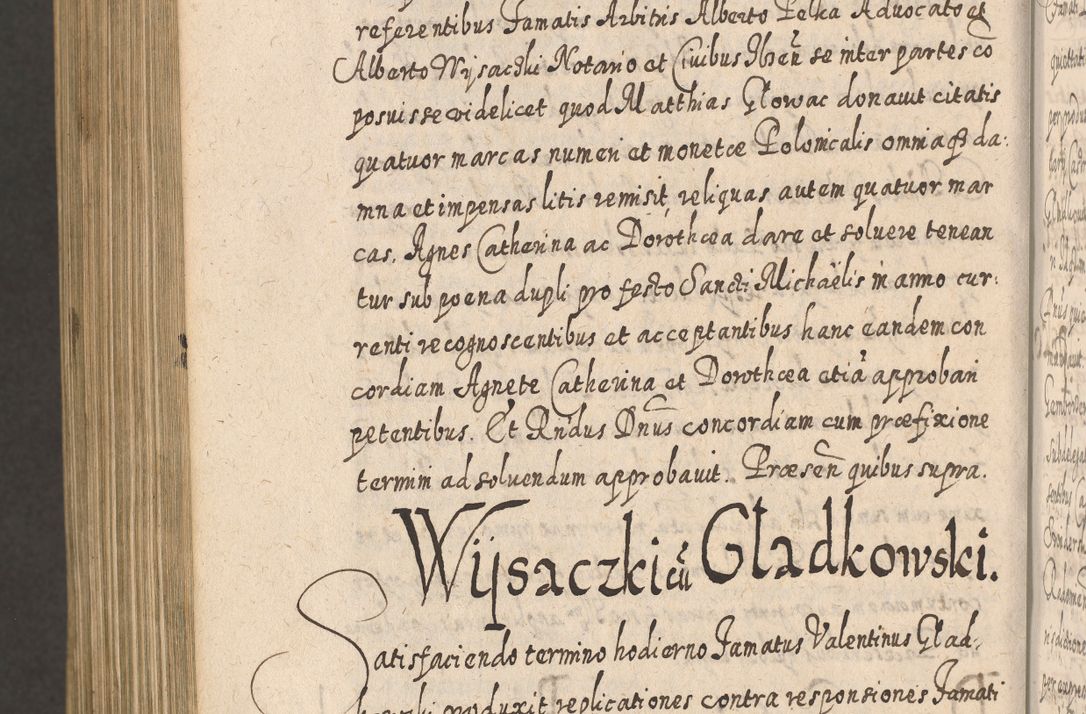 referentibus Famatis Arbitris Alberto Pelka Advocato et
Alberto Wÿsaczki Notario et Civibus Ilzen̄ se inter partes cō
posuisse videlicet quod Matthias Głowac donavit citatis
quatuor marcas numeri et monetæ Polonicalis omniaq3 da:
mna et impensas litis remisit, reliquas autem quatuor mar
cas. Agnes Catherina ac Dorothæa dare et soluere tenean
tur sub poena dupli pro festo Sancti Michaëlis in anno cur:
renti recognoscentibus et acceptantibus hanc eandem con
cordiam Agnete Catherina et Dorothæa etiā approbari
petentibus. Et Rn̄dus Dn̄us concordiam cum præfixione
termini ad soluendum approbavit. Præsen̄ quibus supra.
Wÿsaczki cū Gładkowski.
Satisfaciendo termino hodierno Famatus Valentinus Gład:
kowski produxit replicationes contra responsiones Famati